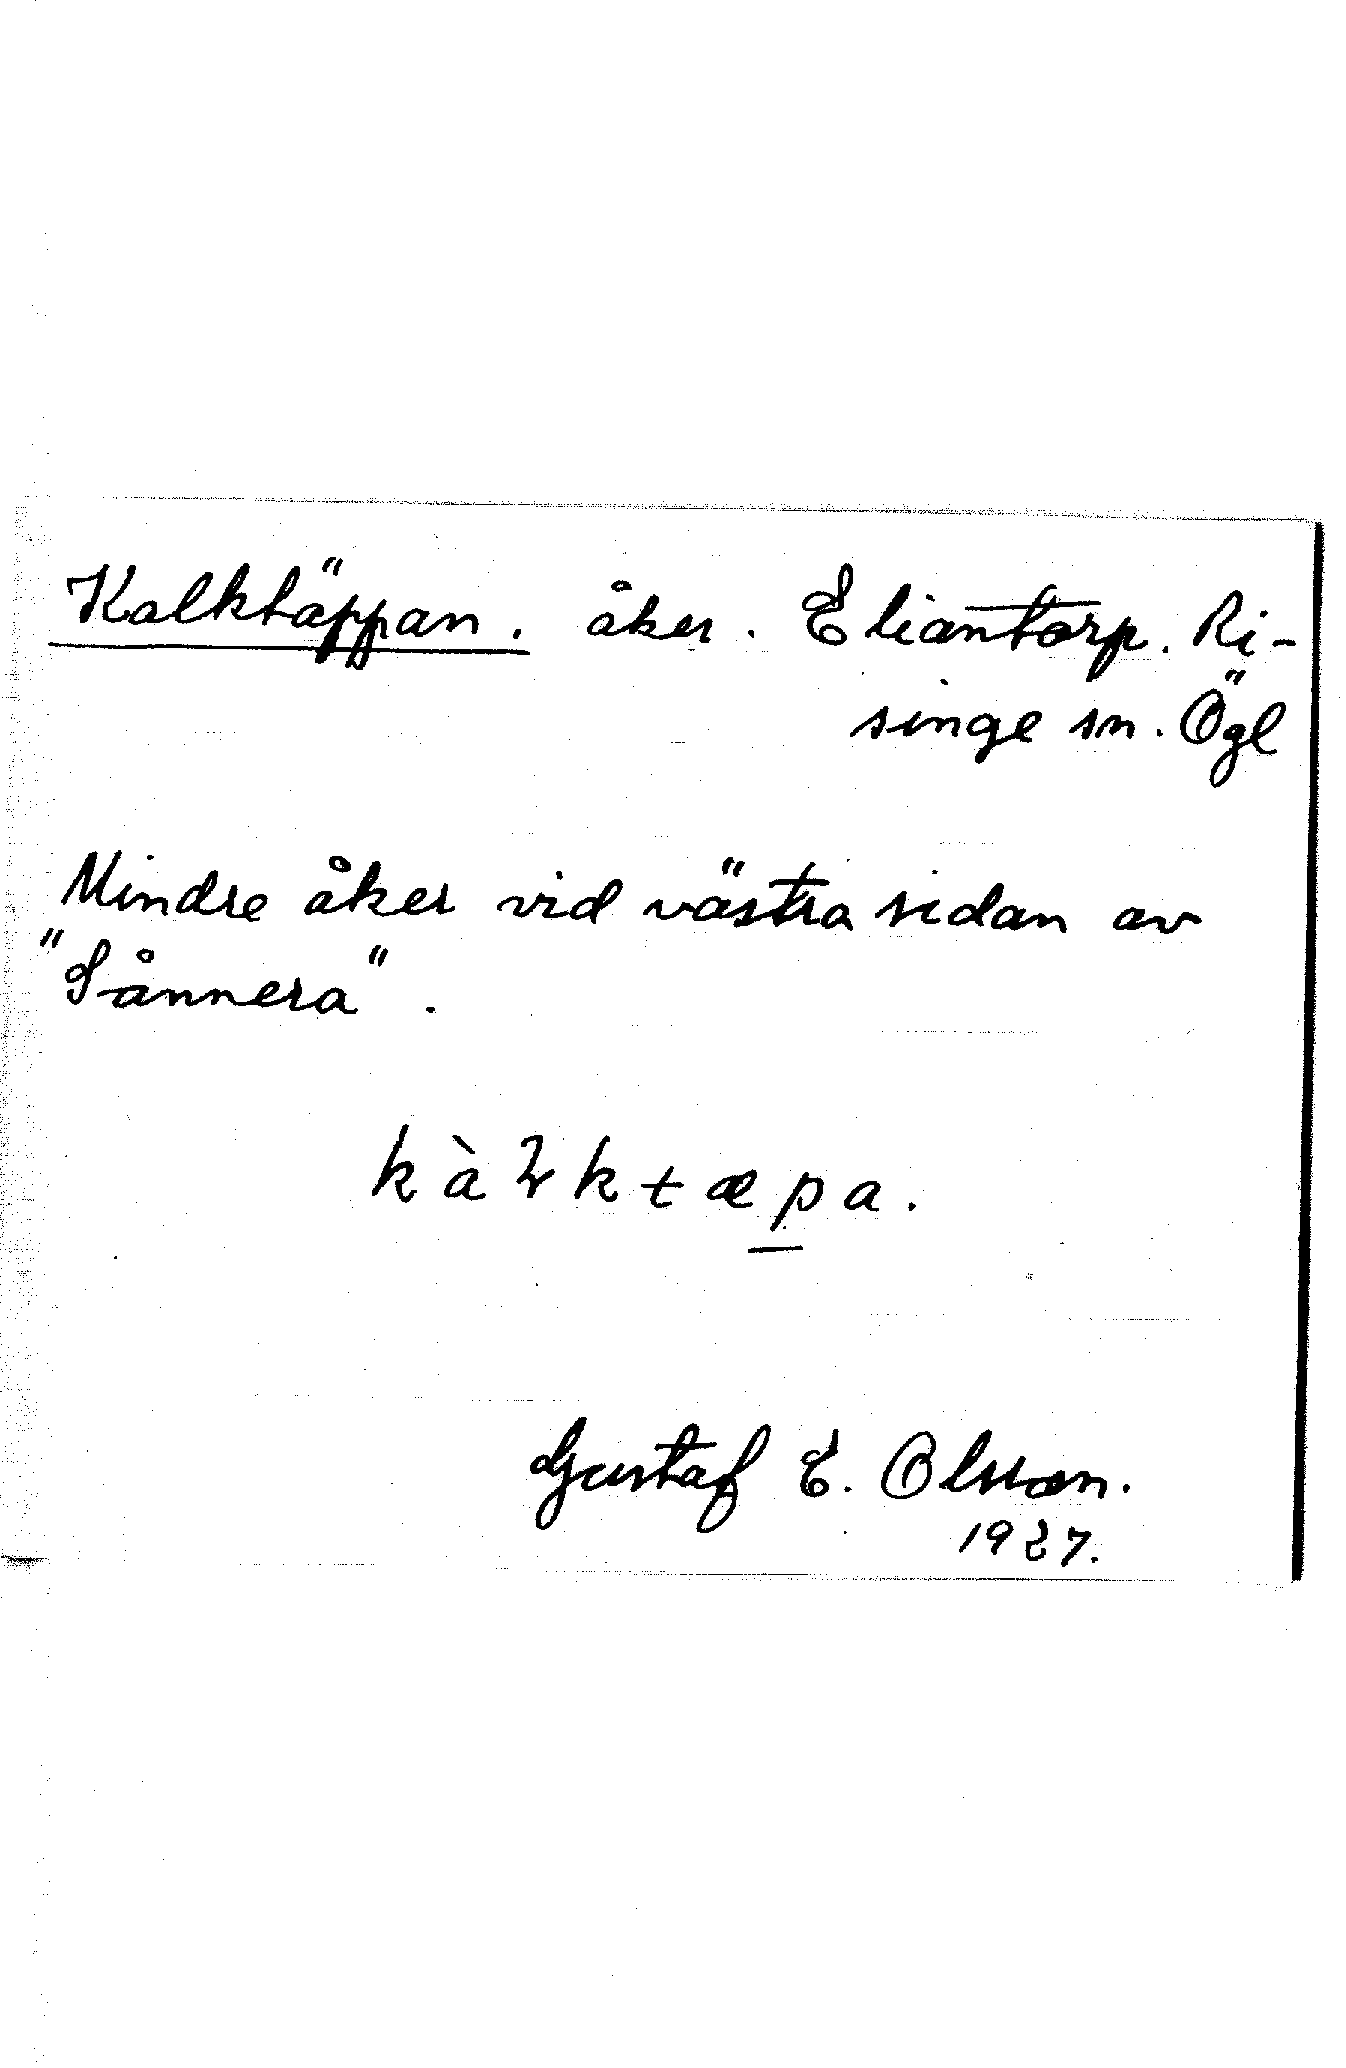 Kalktäppan. åker. Eliantorp. Ri-
singe sn. Ögl
Mindre åker vid västra sidan av
"Sånnera".
kàꝛktæpa.
Gustaf E. Olsson.
1927.